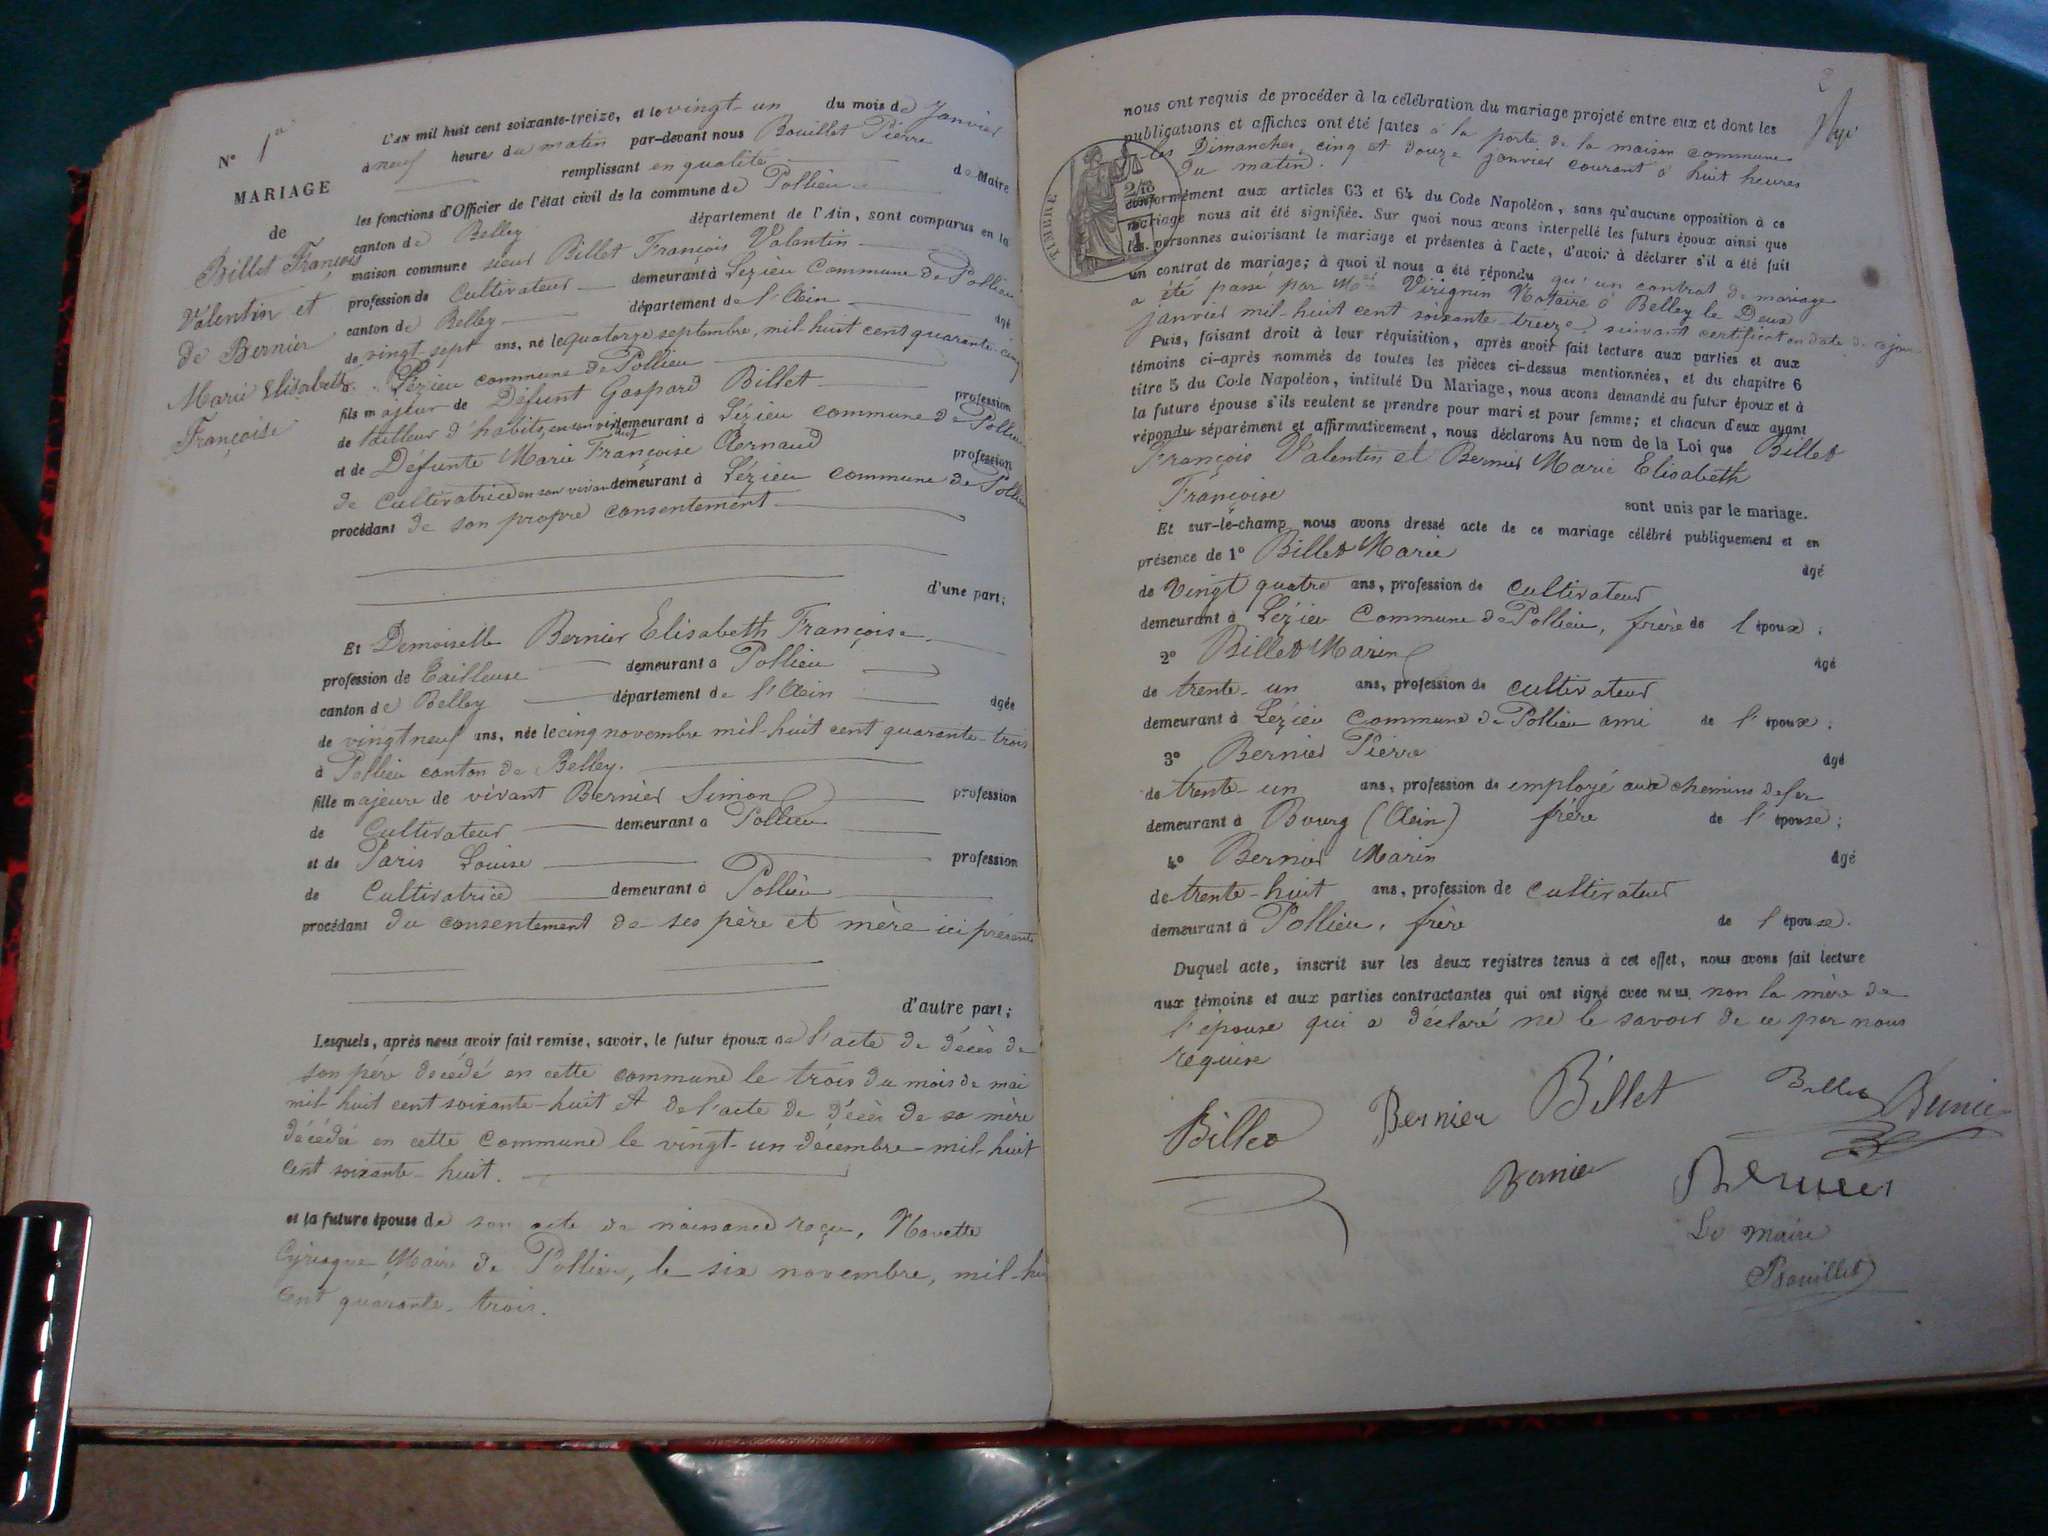 N° 1er
MARIAGE
de
Billet François
Valentin et
de Bernier
Marie Elisabeth
Françoise
L'an mil huit cent soixante-treize, et le vingt-un du mois de Janvier
à neuf heure du matin par-devant nous Bouillet Pierre
remplissant en qualité de Maire
les fonctions d'Officier de l'état civil de la commune de Pollieu
canton de Belley département de l'Ain, sont comparus en la
maison commune sieur Billet François Valentin
profession de Cultivateur demeurant à Lézieu Commune de Pollieu
canton de Belley département de l'Ain âgé
de vingt-sept ans, né le quatorze septembre, mil-huit cent quarante-cinq
à Lézieu commune de Pollieu
fils majeur de Défunt Gaspard Billet profession
de tailleur d'habits, en son vivant demeurant à Lézieu commune de Pollieu
et de Défunte Marie Françoise Arnaud profession
de Cultivatrice en son vivant demeurant à Lézieu commune de Pollieu
procédant de son propre consentement
d'une part;
Et Demoiselle Bernier Elisabeth Françoise
profession de Tailleuse demeurant à Pollieu
canton de Belley département de l'Ain âgée
de vingt neuf ans, née le cinq novembre mil-huit cent quarante-trois
à Pollieu canton de Belley.
fille majeure de vivant Bernier Simon profession
de Cultivateur demeurant à Pollieu
et de Paris Louise profession
de Cultivatrice demeurant à Pollieu
procédant du consentement de ses père et mère ici présents
d'autre part;
Lesquels, après nous avoir fait remise, savoir, le futur époux de l'acte de décès de
son père décédé en cette commune le trois du mois de mai
mil-huit cent soixante-huit et de l'acte de décès de sa mère
décédée en cette commune le vingt-un décembre-mil-huit
cent soixante-huit.
et la future épouse de son acte de naissance reçu,
Maire de Pollieu, le six novembre, mil-hui
cent quarante-trois.
2
nous ont requis de procéder à la célébration du mariage projeté entre eux et dont les
publications et affiches ont été faites à la porte de la maison commune
les Dimanches, cinq et douze janvier courant à huit heures
du matin.
TIMBRE
conformément aux articles 63 et 64 du Code Napoléon, sans qu'aucune opposition à ce
mariage nous ait été signifiée. Sur quoi nous avons interpellé les futurs époux ainsi que
les personnes autorisant le mariage et présentes à l'acte, d'avoir à déclarer s'il a été fait
un contrat de mariage; à quoi il nous a été répondu qu'un contrat de mariage
a été passé par Me Virignin Notaire à Belley le Deux
janvier mil-huit cent soixante-treize, suivant certificat en date de ce jour
Puis, faisant droit à leur réquisition, après avoir fait lecture aux parties et aux
témoins ci-après nommés de toutes les pièces ci-dessus mentionnées, et du chapitre 6
titre 5 du Code Napoléon, intitulé Du Mariage, nous avons demandé au futur époux et à
la future épouse s'ils veulent se prendre pour mari et pour femme; et chacun d'eux ayant
répondu séparément et affirmativement, nous déclarons Au nom de la Loi que Billet
François Valentin et Bernier Marie Elisabeth
Françoise
sont unis par le mariage.
Et sur-le-champ nous avons dressé acte de ce mariage célébré publiquement et en
présence de 1° Billet Marie
âgé
de Vingt quatre ans, profession de cultivateur
demeurant à Lézieu Commune de Pollieu, frère de l'époux;
2° Billet Marin
âgé
de trente-un ans, profession de cultivateur
demeurant à Lézieu Commune de Pollieu ami de l'époux;
3° Bernier Pierre
âgé
de trente-un ans, profession de employé aux chemins de fer
demeurant à Bourg (Ain) frère de l'épouse;
4° Bernier Marin
âgé
de trente-huit ans, profession de cultivateur
demeurant à Pollieu, frère de l'épouse.
Duquel acte, inscrit sur les deux registres tenus à cet effet, nous avons fait lecture
aux témoins et aux parties contractantes qui ont signé avec nous, non la mère de
l'épouse qui a déclaré ne le savoir de ce par nous
requise
Billet Bernier Billet Billet Bernier
Bernier Bernier
Le Maire
Bouillet